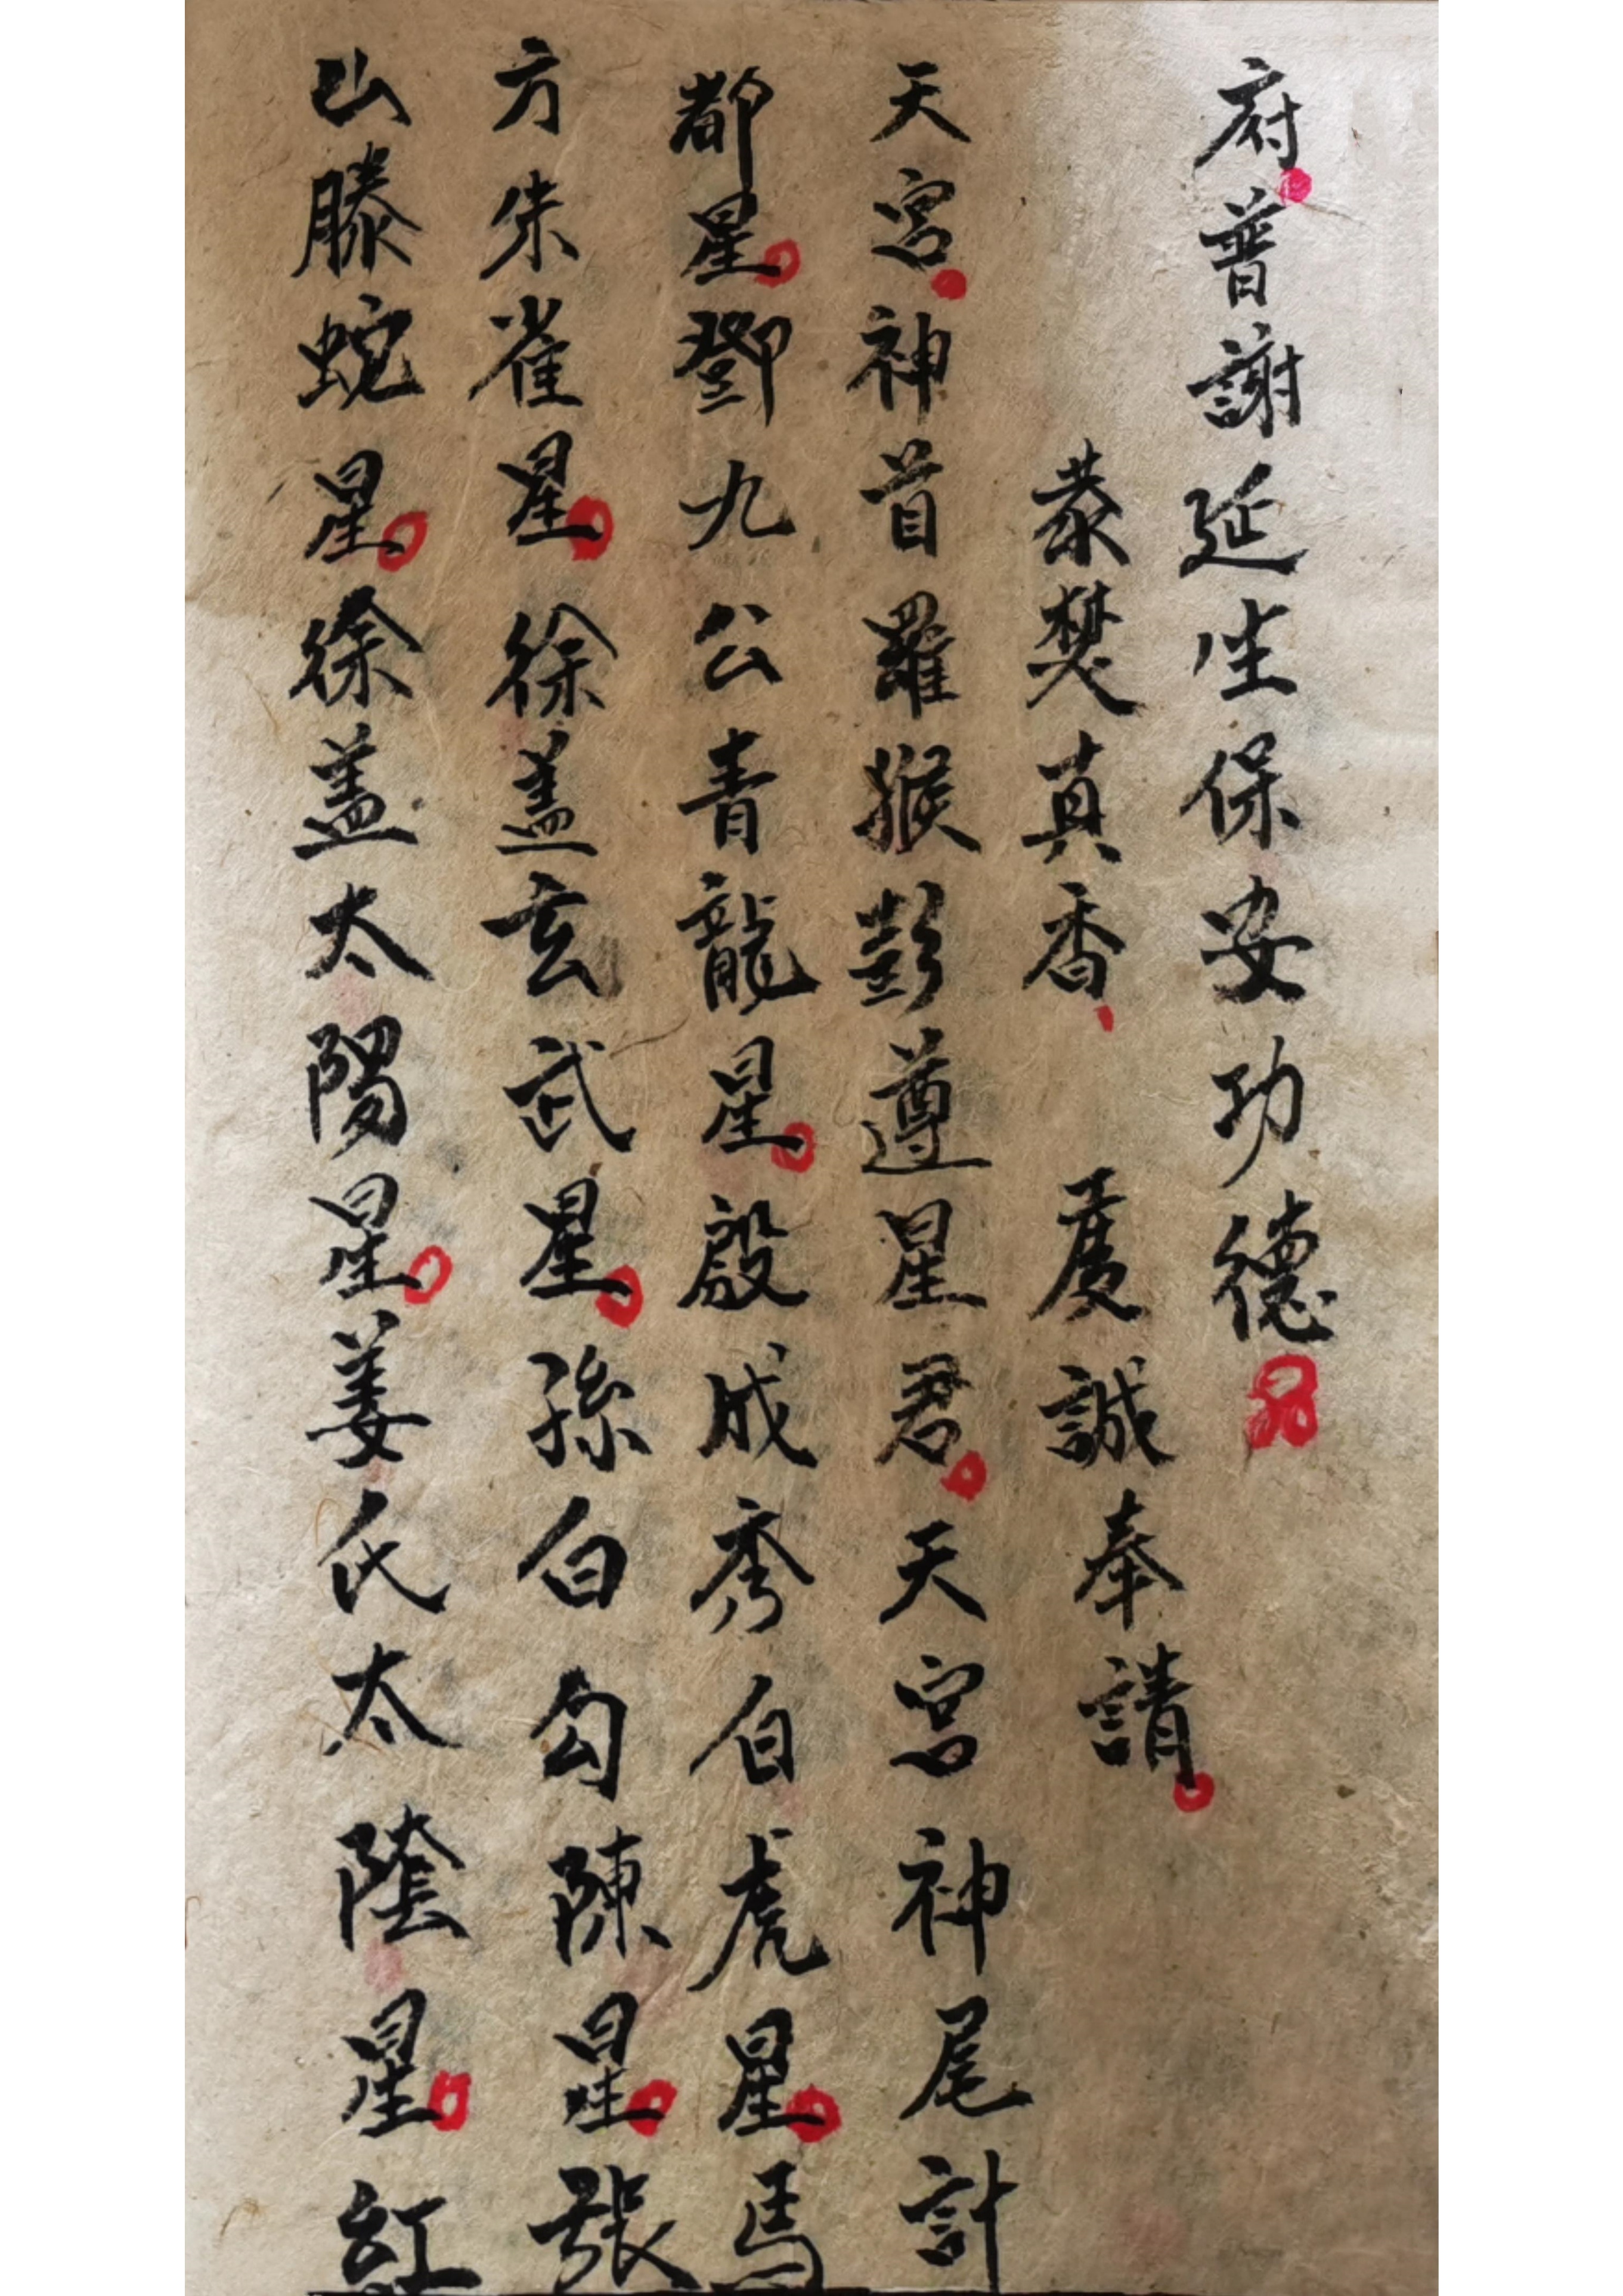 府普謝延生保安功德
恭焚真香 虔誠奉請
天宮神首羅猴彭遵星君天宮神尾計
都星鄧九公青龍星殷成秀白虎星馬
方朱雀星徐盖玄武星孫白勾陳星張
山滕蛇星徐盖太陽星姜氏太陰星紅